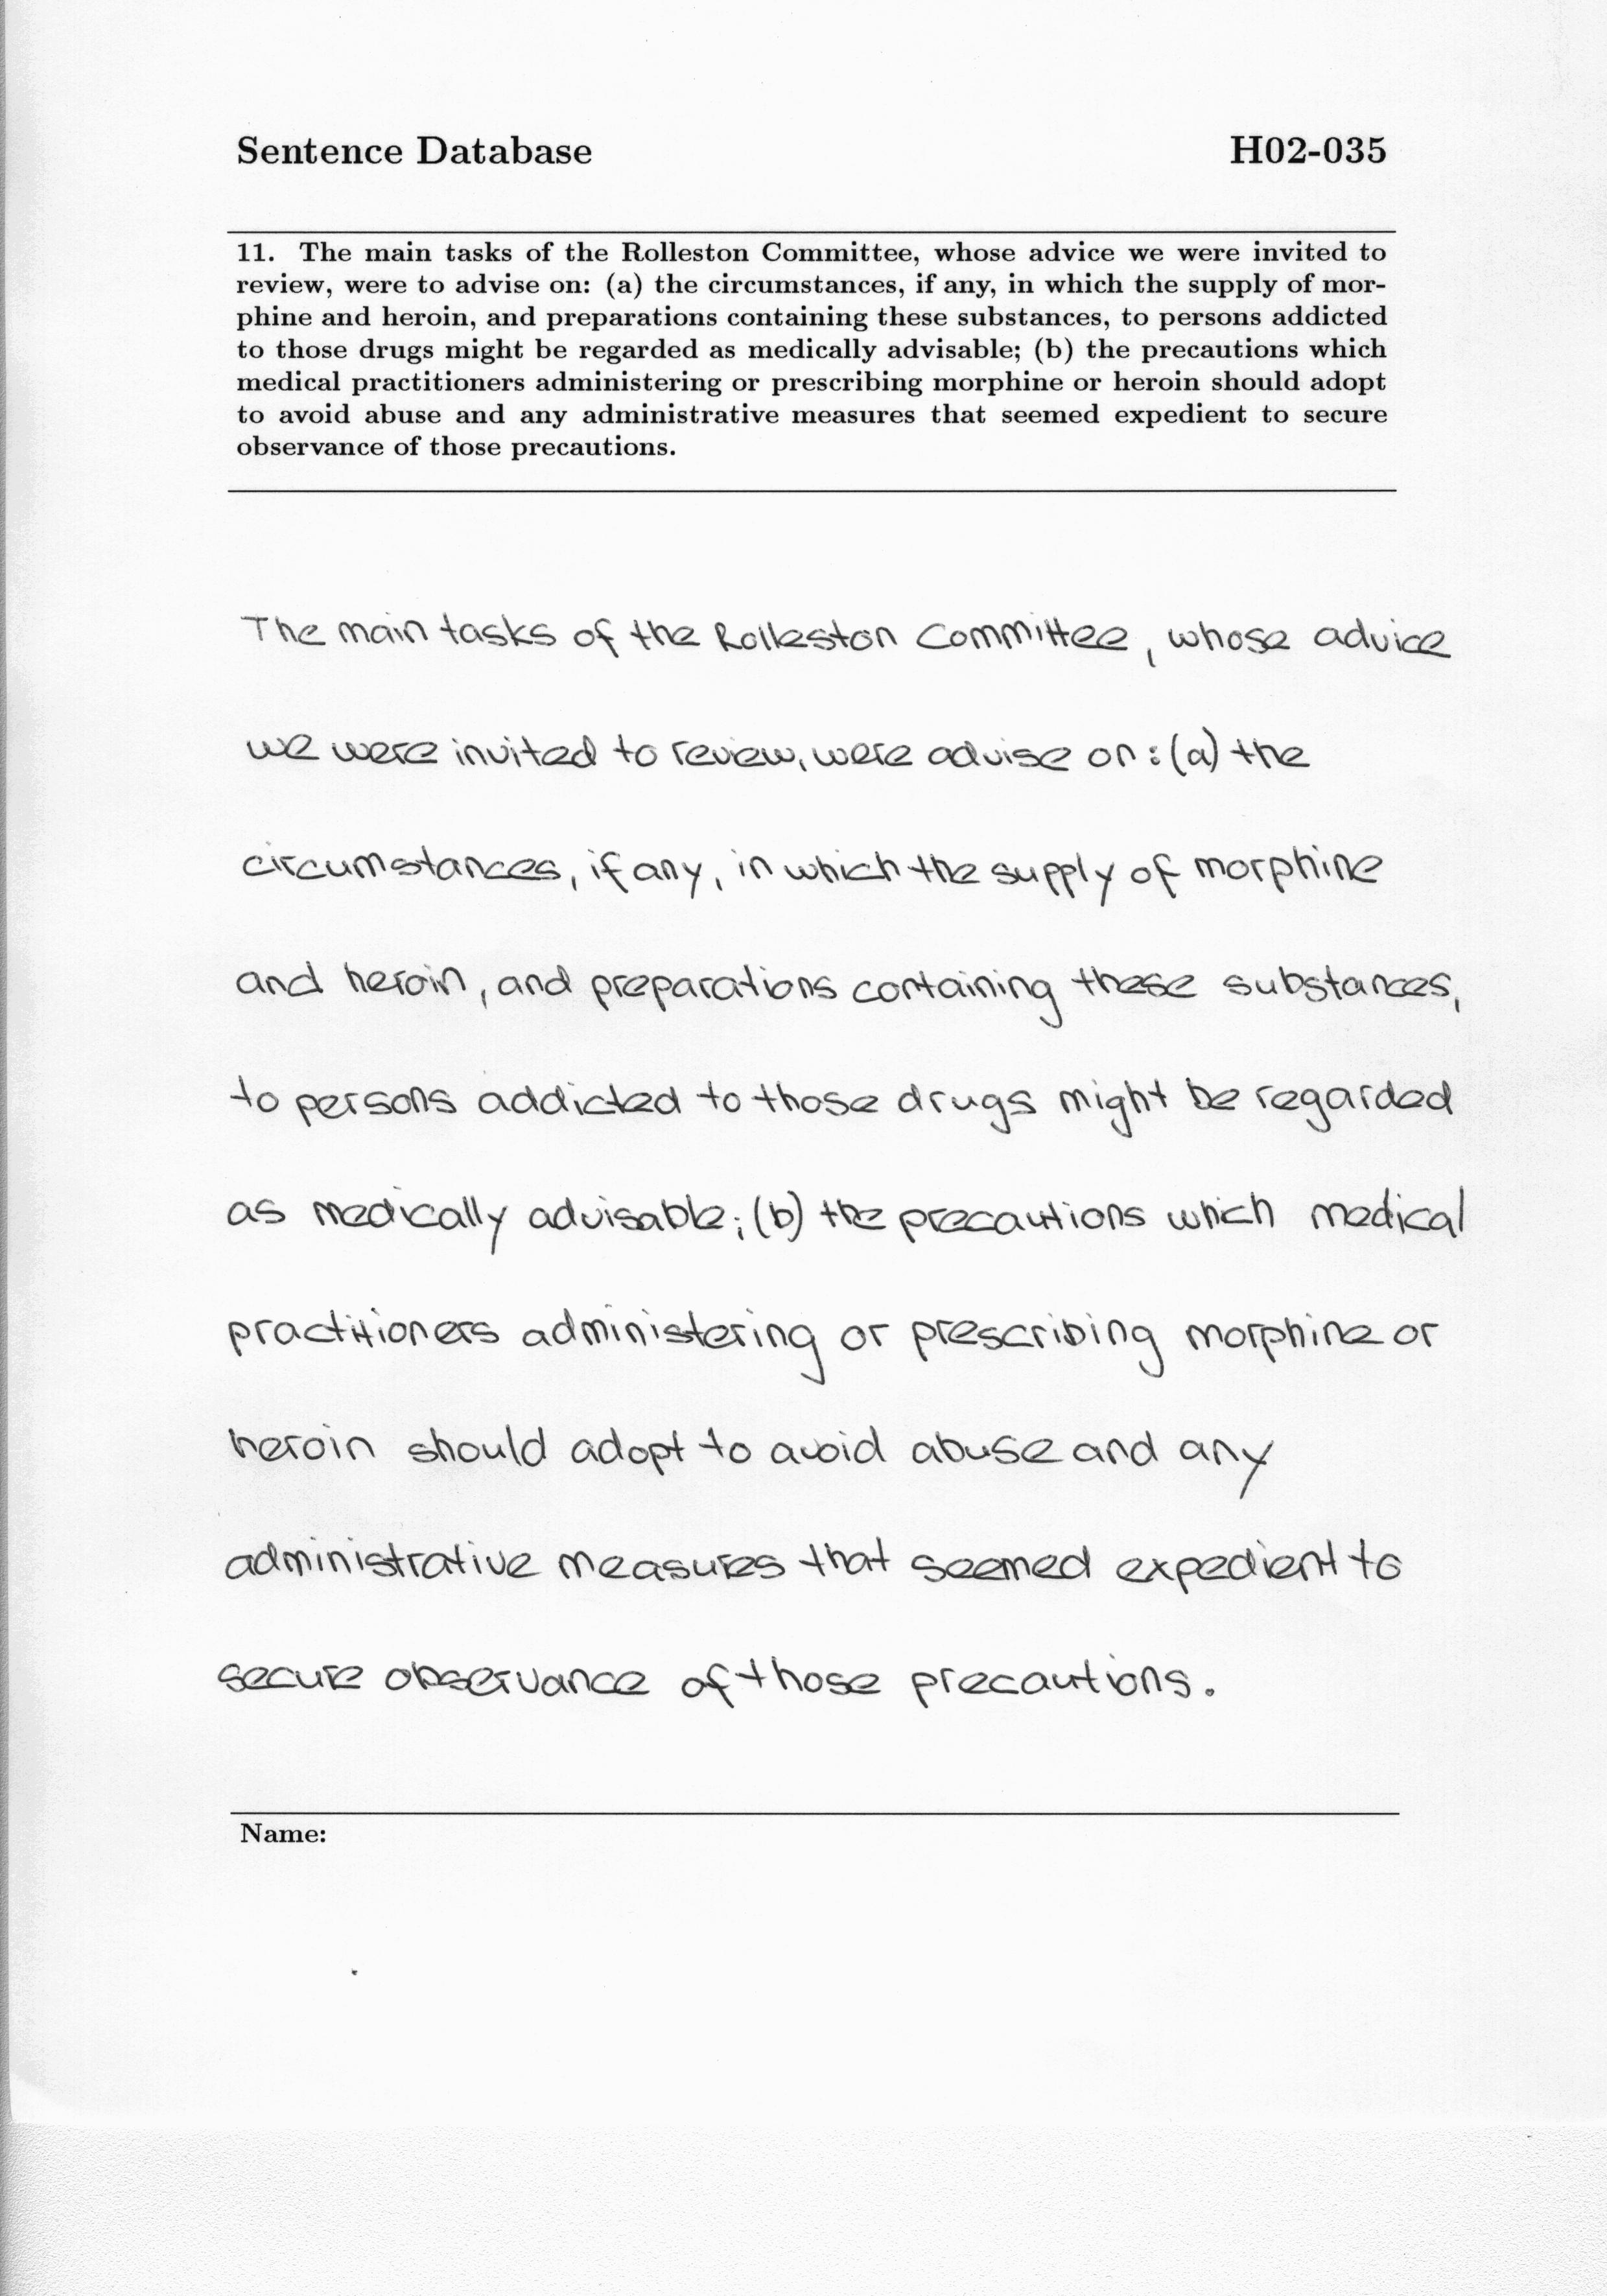 Sentence Database H02-035
11. The main tasks of the Rolleston Committee, whose advice we were invited to
review, were to advise on: (a) the circumstances, if any, in which the supply of mor-
phine and heroin, and preparations containing these substances, to persons addicted
to those drugs might be regarded as medically advisable; (b) the precautions which
medical practitioners administering or prescribing morphine or heroin should adopt
to avoid abuse and any administrative measures that seemed expedient to secure
observance of those precautions.
The main tasks of the Rolleston Committee, whose advice
we were invited to review, were advise on: (a) the
circumstances, if any, in which the supply of morphine
and heroin, and preparations containing these substances,
to persons addicted to those drugs might be regarded
as medically advisable; (b) the precautions which medical
practitioners administering or prescribing morphine or
heroin should adopt to avoid abuse and any
administrative measures that seemed expedient to
secure observance of those precautions.
Name: